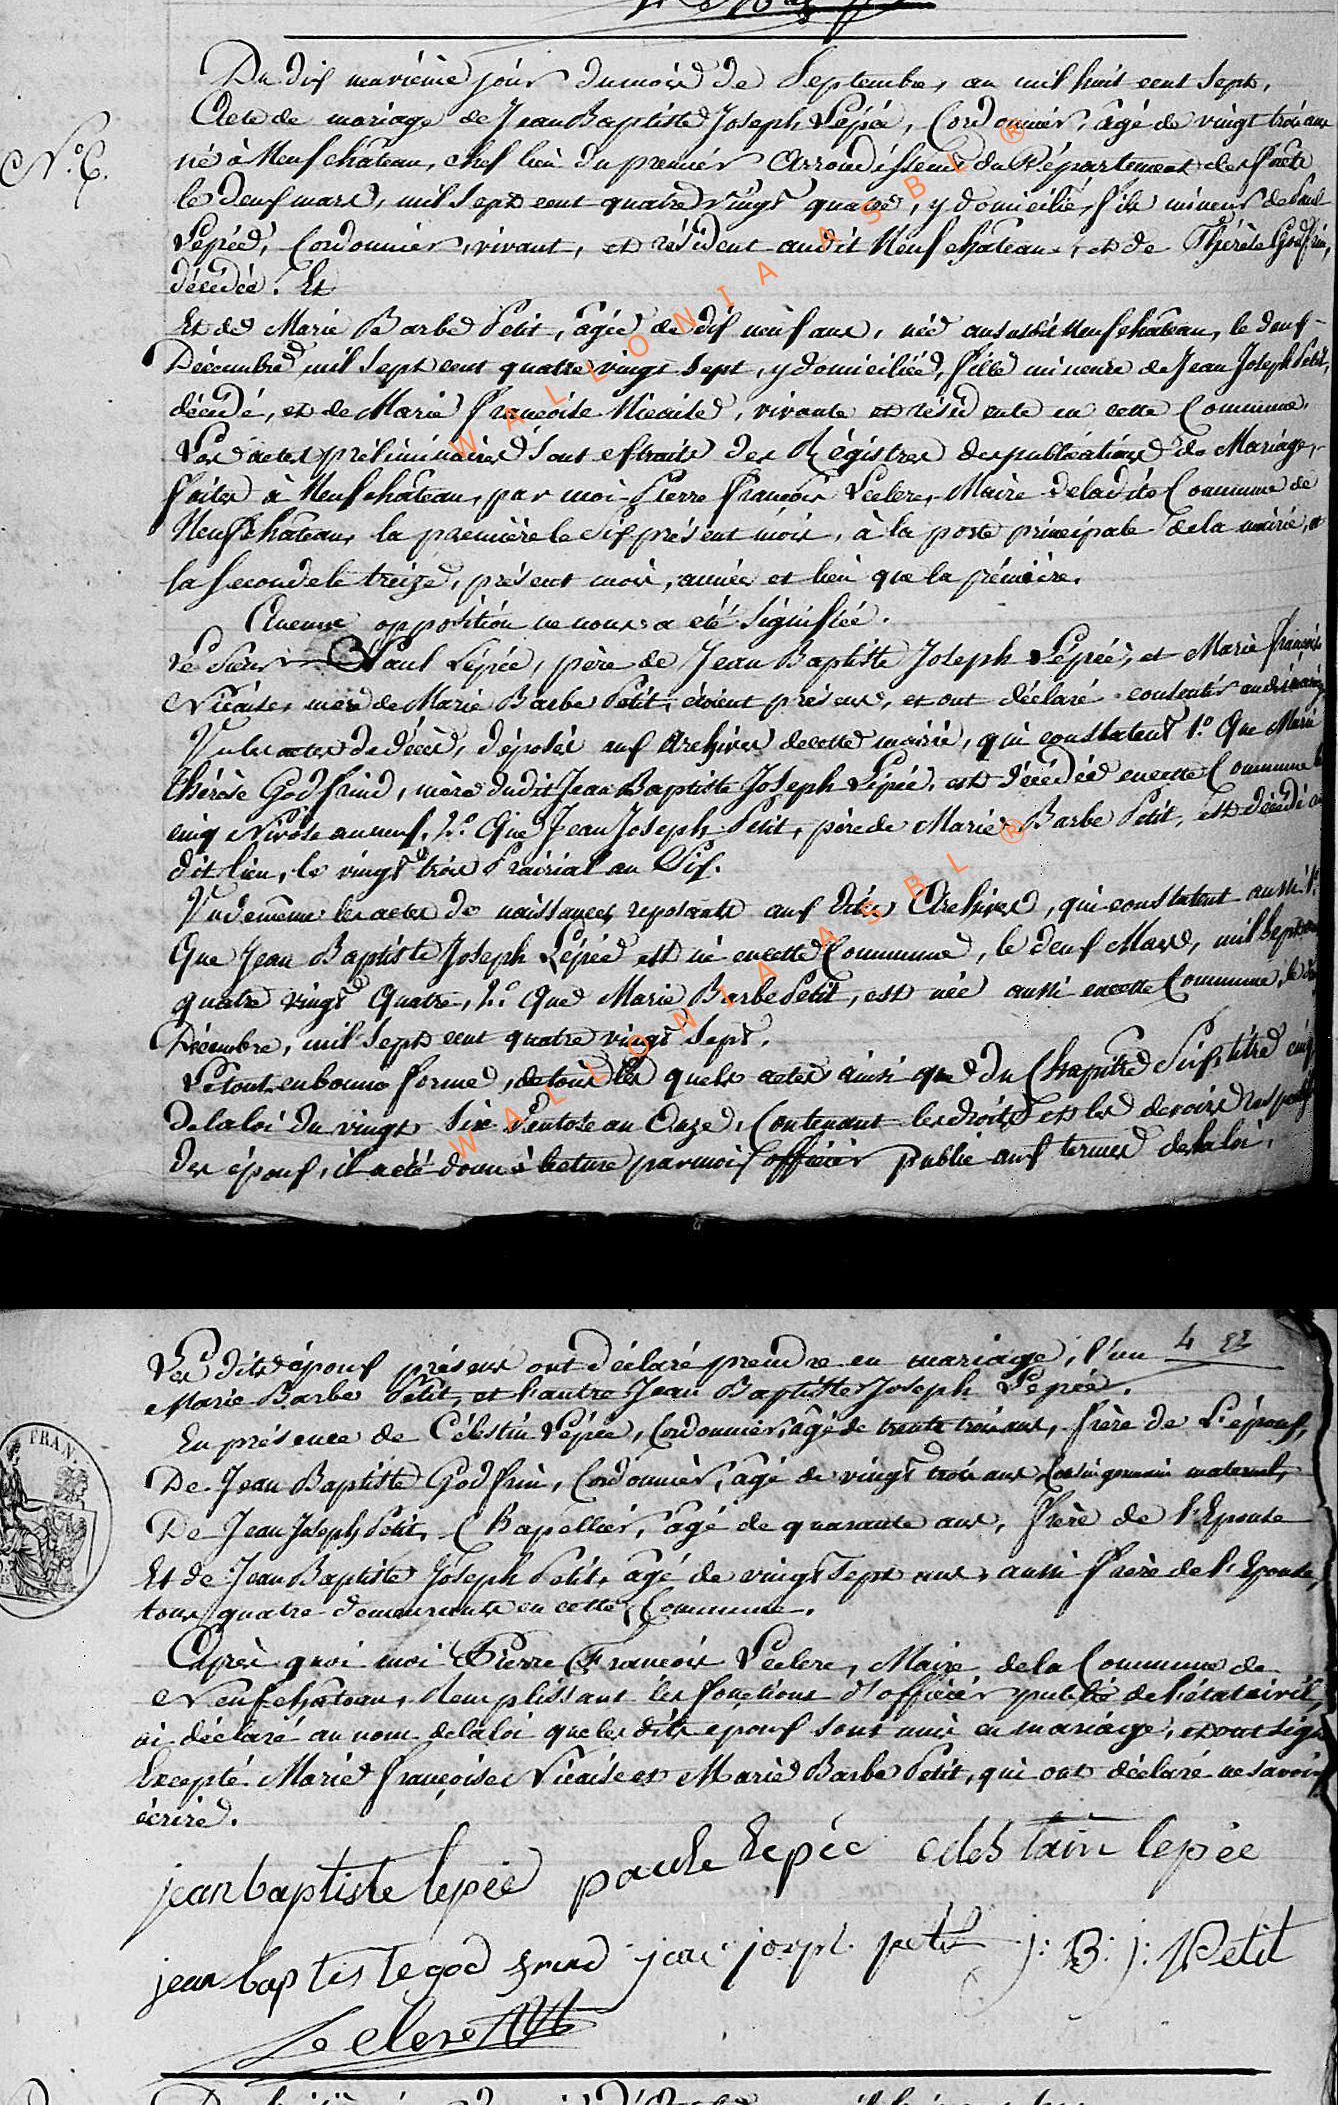 Du dix neuvième jour du mois de Septembre, an mil huit cent Sept,
N.º 6.
Acte de mariage de Jean Baptiste Joseph Lépée, Cordonnier, âgé de vingt trois ans
né à Neufchâteau, chef lieu du premier Arrondissement du Département des forêts
le deux mars, mil Sept cent quatre vingt quatre, y domicilié, fils mineur de Paul
Lépée, Cordonnier, vivant, et résident audit Neufchâteau, et de Thérèse Godfrin,
décédée. Et
Et de Marie Barbe Petit, âgée de dix neuf ans, née aussi Neufchâteau, le deux
Décembre mil Sept cent quatre vingt Sept, y domiciliée, fille mineure de Jean Joseph Petit,
décédé, et de Marie françoise Nicaise, vivante et résidente en cette Commune.
Les actes préliminaires Sont extraits des Régistres des publications de Mariage,
faites à Neufchâteau, par moi Pierre françois Leclerc, Maire de la dite Commune de
Neufchâteau, la première le Six présent mois, à la porte principale de la mairie, et
la Seconde le treize, présent mois, année et lieu que la prémière.
Aucune opposition ne nous a été Signifiée.
Le Sieur Paul Lépée, père de Jean Baptiste Joseph Lépée, et Marie françoise
Nicaise, mère de Marie Barbe Petit, étoient présens, et ont déclaré consentir audit mariage
Vu les actes de décès, déposés aux Archives de cette mairie, qui constatent 1.º Que Marie
thérèse Godfrind, mère dudit Jean Baptiste Joseph Lépée, est décédée en cette Commune le
cinq Nivôse an neuf. 2.º Que Jean Joseph Petit, père de Marie Barbe Petit, est décédé au
dit lieu, le vingt trois Prairial an Dix.
Vu de même les actes de naissances, reposants aux dites Archives, qui constatent aussi 1.º
Que Jean Baptiste Joseph Lépée est né en cette Commune, le deux Mars, mil Sept cent
quatre vingt Quatre, 2.º Que Marie Barbe Petit, est née aussi en cette Commune, le deux
Décembre, mil Sept cent quatre vingt Sept.
Le tout en bonne forme, de tous les quels actes ainsi que du Chapitre Six, titre cinq
de la loi du vingt Six Ventose an Onze, Contenant les droits et les devoirs respectifs
des époux, il a été donné lecture par moi officier public aux termes de la loi.
4 22
Les dits époux présens ont déclaré prendre en mariage, l'un
Marie Barbe Petit, et l'autre Jean Baptiste Joseph Lépée.
En présence de Célestin Lépée, Cordonnier, âgé de trente trois ans, frère de L'époux,
De Jean Baptiste Godfrin, Cordonnier, âgé de vingt trois ans Cousin germain maternel,
De Jean Joseph Petit, Chapellier, âgé de quarante ans, frère de l'Epouse
Et de Jean Baptiste Joseph Petit, âgé de vingt Sept ans, aussi frère de l'Epouse,
tous quatre demeurants en cette Commune.
Après quoi moi Pierre François Leclerc, Maire de la Commune de
Neufchâteau, Remplissant les fonctions d'officier public de l'état civil,
ai déclaré au nom de la loi que les dits époux sont unis en mariage, et ont signé
Excepté Marie françoise Nicaise et Marie Barbe Petit, qui ont déclaré ne savoir
écrire.
jean baptiste lepée paule Lepée celestain lepée
jean baptiste god frind jean joseph petit j: B: j: Petit
Leclerc
FRAN.
WALLONIA ASBL ®
WALLONIA ASBL ®